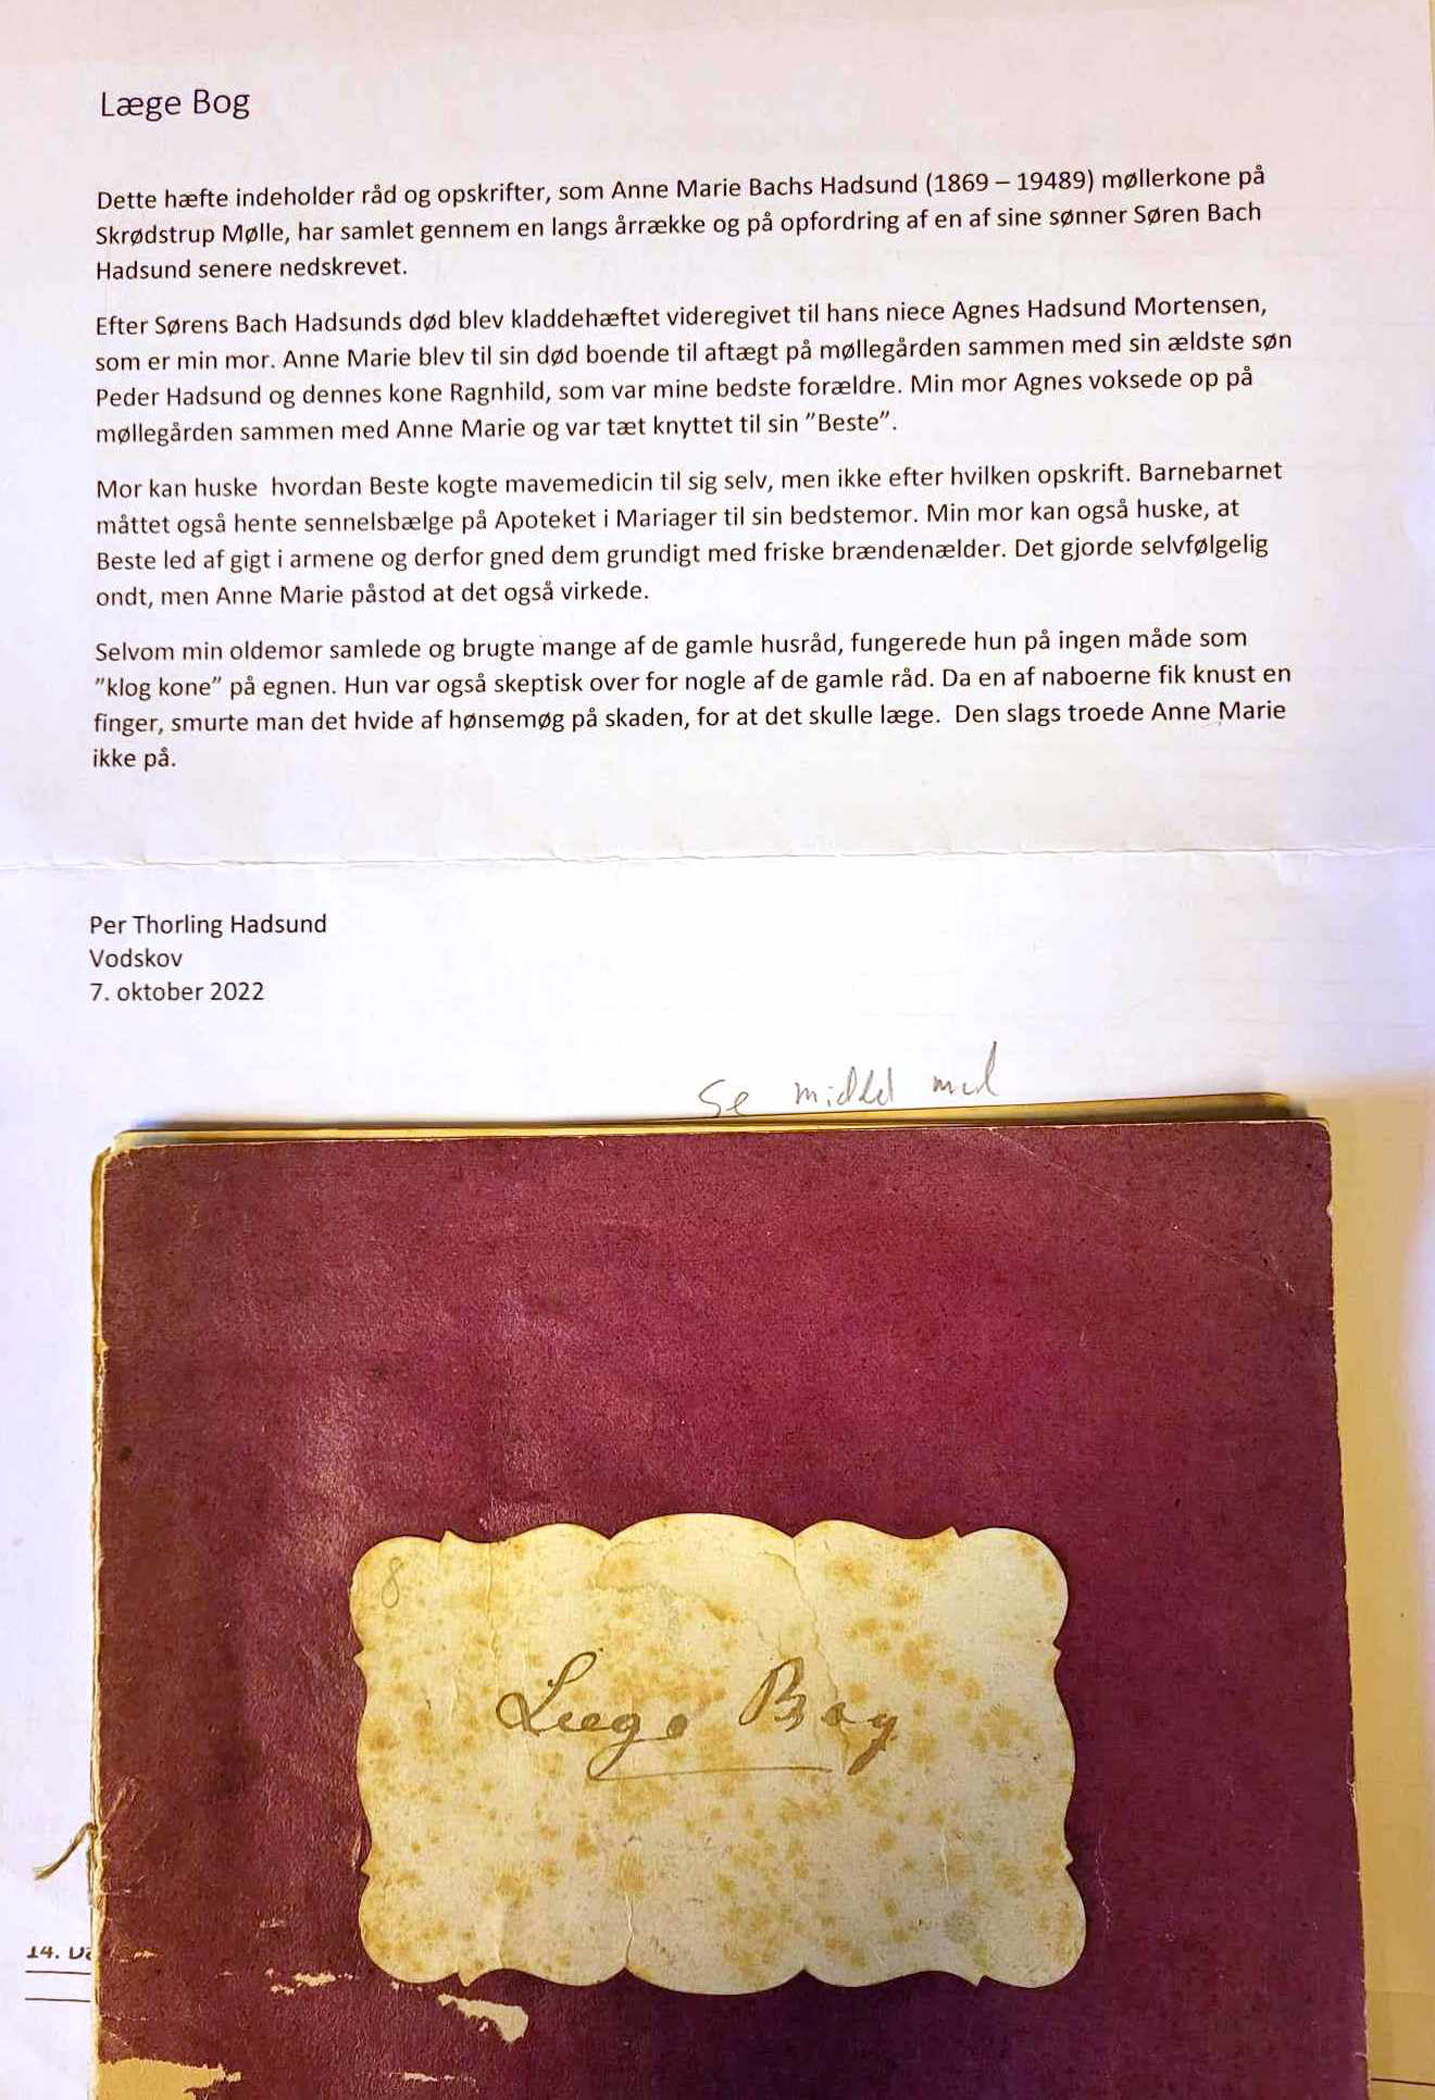 Læge Bog
Dette hæfte indeholder råd og opskrifter, som Anne Marie Bachs Hadsund (1869 – 19489) møllerkone på
Skrødstrup Mølle, har samlet gennem en langs årrække og på opfordring af en af sine sønner Søren Bach
Hadsund senere nedskrevet.
Efter Sørens Bach Hadsunds død blev kladdehæftet videregivet til hans niece Agnes Hadsund Mortensen,
som er min mor. Anne Marie blev til sin død boende til aftægt på møllegården sammen med sin ældste søn
Peder Hadsund og dennes kone Ragnhild, som var mine bedste forældre. Min mor Agnes voksede op på
møllegården sammen med Anne Marie og var tæt knyttet til sin ”Beste”.
Mor kan huske  hvordan Beste kogte mavemedicin til sig selv, men ikke efter hvilken opskrift. Barnebarnet
måttet også hente sennelsbælge på Apoteket i Mariager til sin bedstemor. Min mor kan også huske, at
Beste led af gigt i armene og derfor gned dem grundigt med friske brændenælder. Det gjorde selvfølgelig
ondt, men Anne Marie påstod at det også virkede.
Selvom min oldemor samlede og brugte mange af de gamle husråd, fungerede hun på ingen måde som
”klog kone” på egnen. Hun var også skeptisk over for nogle af de gamle råd. Da en af naboerne fik knust en
finger, smurte man det hvide af hønsemøg på skaden, for at det skulle læge.  Den slags troede Anne Marie
ikke på.
Per Thorling Hadsund
Vodskov
7. oktober 2022
Se middel med
8
Læge Bog
14.